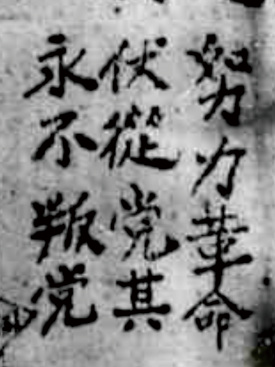 努力革命
伏從党其
永不叛党